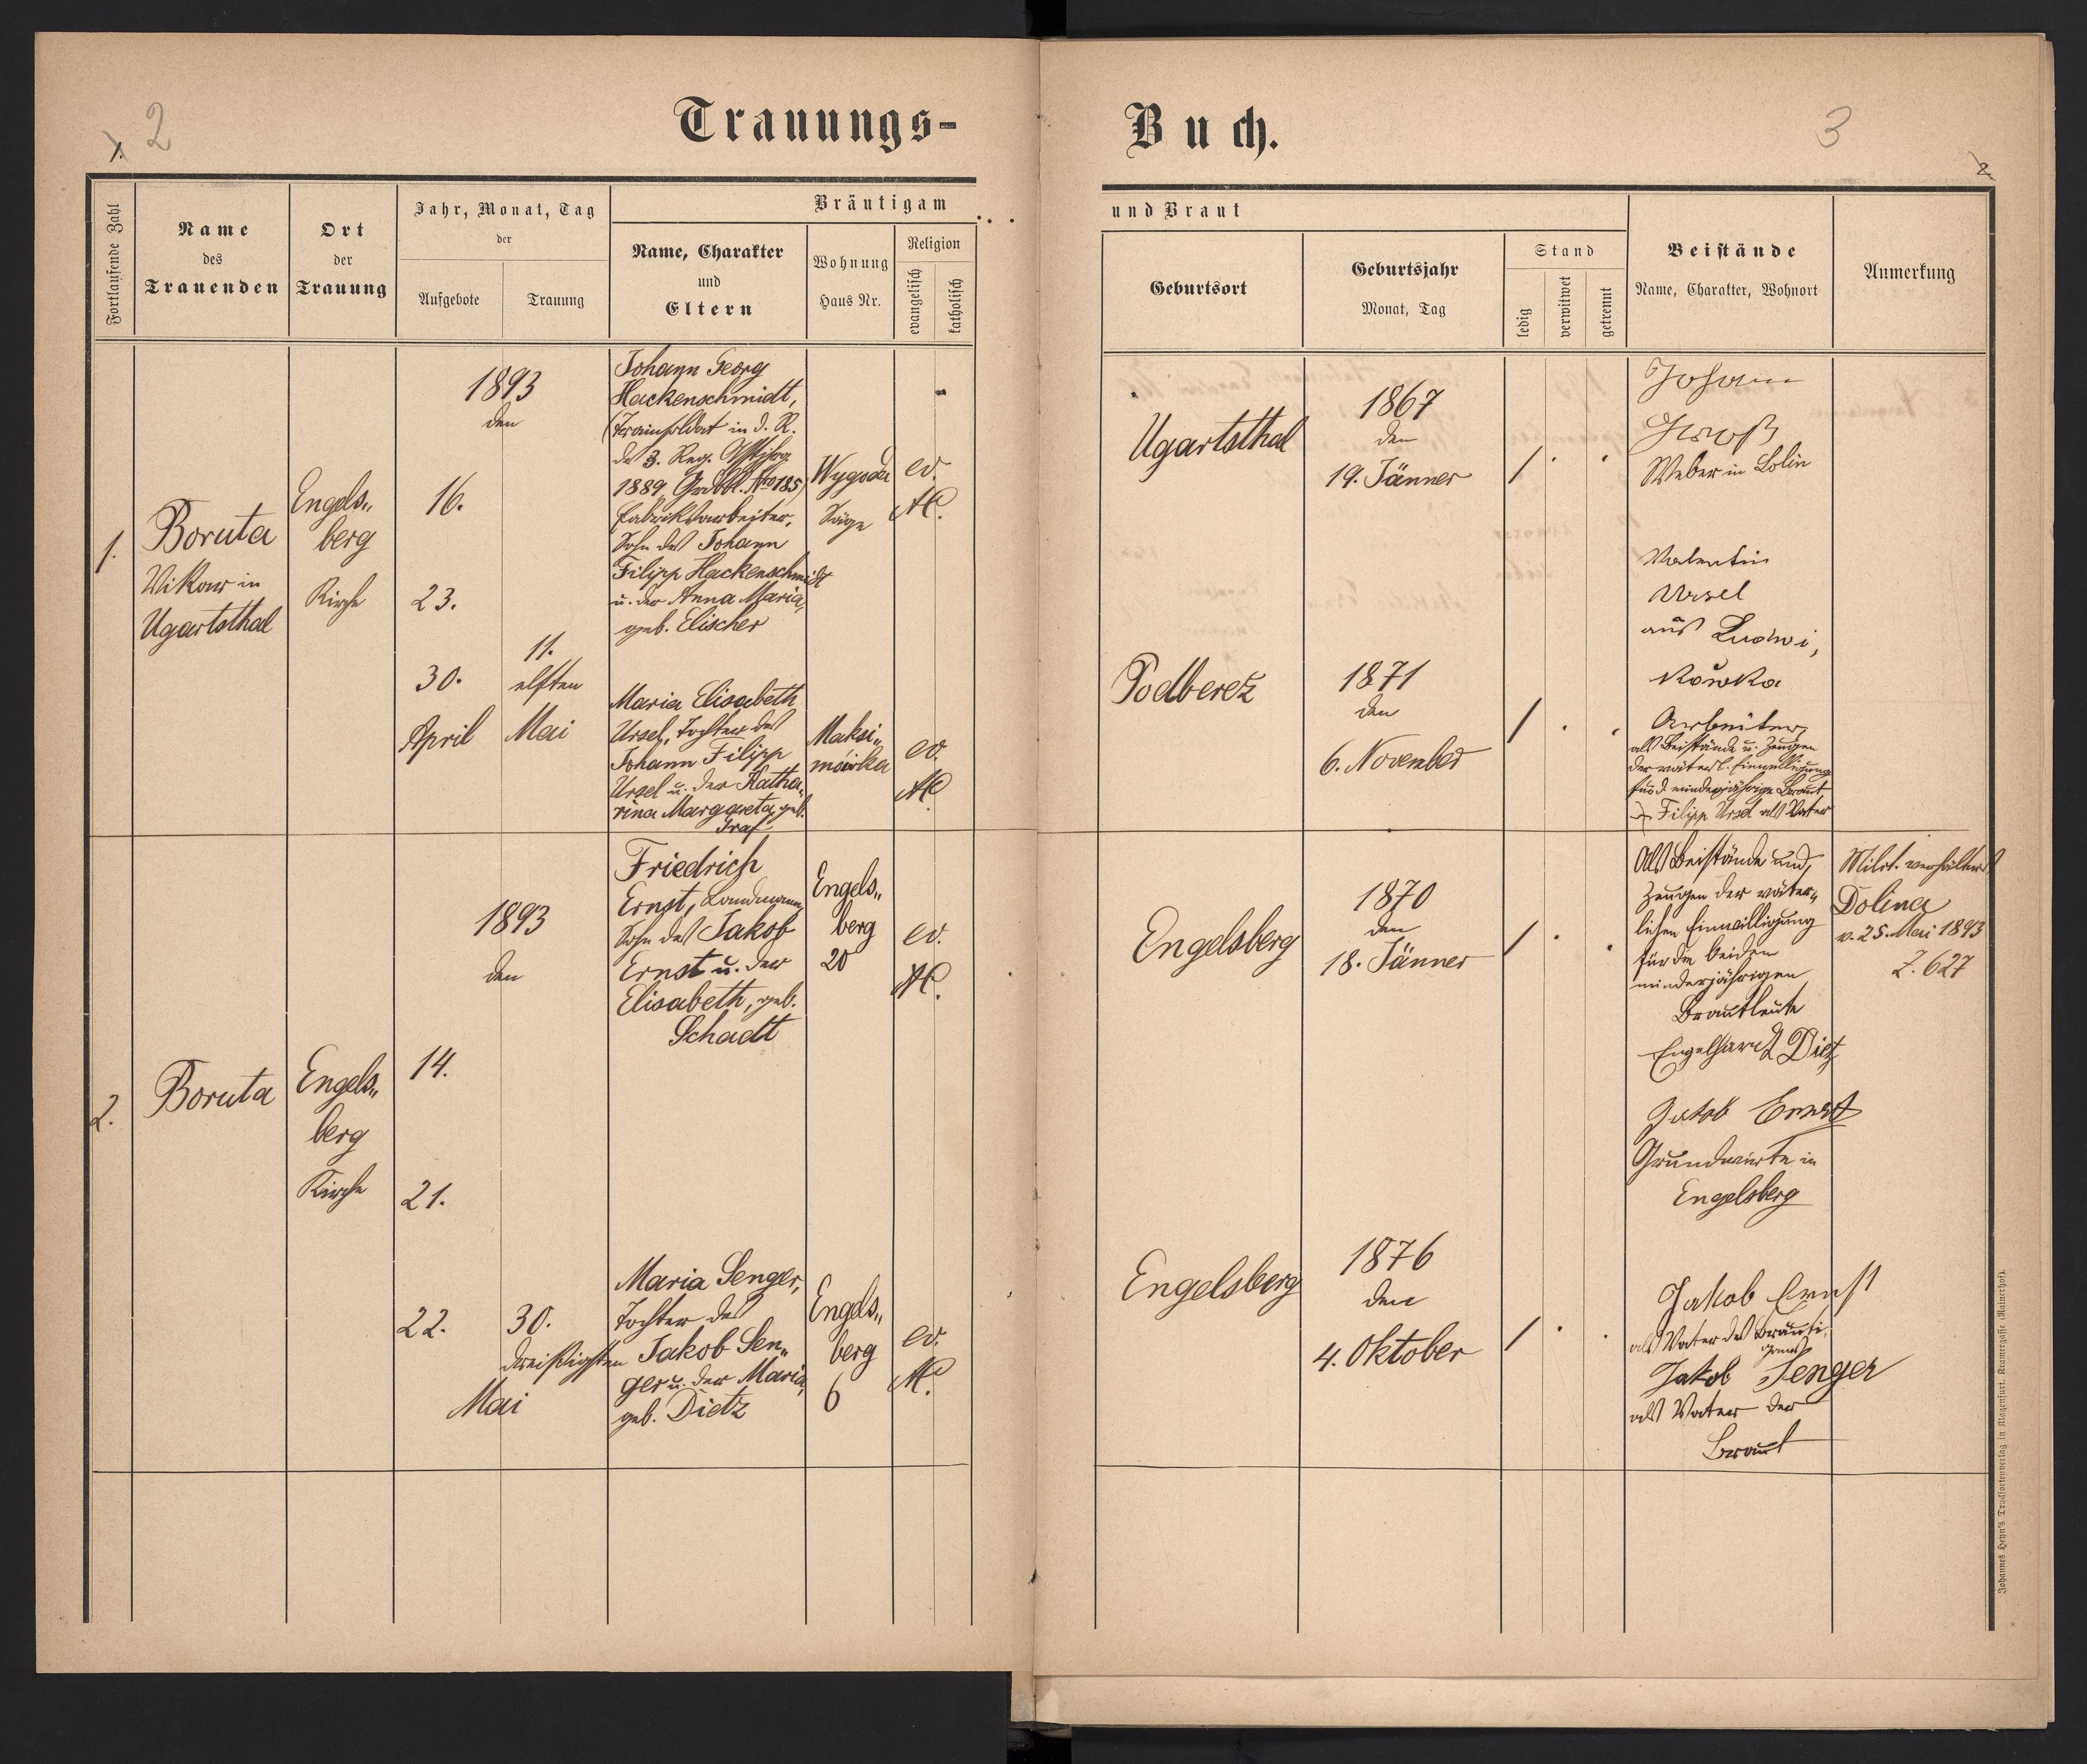 1.
2
Trauungs-
Fortlaufende Zahl
Name
des
Trauenden
Ort
der
Trauung
Jahr, Monat, Tag
der
Aufgebote
Trauung
Bräutigam
Name, Charakter
und
Eltern
Wohnung
Haus Nr.
Religion
evangelisch
katholisch
1.
Boruta
Vikar in
Ugartsthal
Engels„
berg
Kirche
1893
den
16.
23.
30.
April
11.
elften
Mai
Johann Georg
Hackenschmidt,
(Trainsoldat in d. R.
des 3. Reg.
1889, Grdbbl. Nro 185)
Fabriksarbeiter,
Sohn des Johann
Filipp Hackenschmidt
u. der Anna Maria,
geb. Elischer
Wygoda
Säge
ev.
AC.
Maria Elisabeth
Ursel, Tochter des
Johann Filipp
Ursel u. der Katha„
rina Margareta, geb.
Graf
Maksi„
mówka
ev.
AC
2.
Boruta
Engels„
berg
Kirche
1893
den
14.
21.
22.
30.
dreißigsten
Mai
Friedrich
Ernst, Landmann,
Sohn des Jakob
Ernst u. der
Elisabeth, geb.
Schadt
Engels„
berg
20
ev.
AC.
Maria Senger,
Tochter des
Jakob Sen„
ger u. der Maria,
geb. Dietz
Engels„
berg
6
ev.
AC.
Buch.
3
2
und Braut
Geburtsort
Geburtsjahr
Monat, Tag
Stand
ledig
verwitwet
getrennt
Beistände
Name, Charakter, Wohnort
Anmerkung
Ugartsthal
1867
den
19. Jänner
/
Johann
Weber in Dolin
Valentin
Ursel
aus Ludwi,
kowka
Podbereż
1871
den
6. November
/
Arbeiter,
als Beistände u. Zeugen
der väterl. Einwilligung
für d. minderjährige Braut
Filipp Ursel als Vater
Engelsberg
1870
den
18. Jänner
/
Als Beistände und
Zeugen der väter„
lichen Einwilligung
für die beiden
minderjährigen
Brautleute
Engelhardt Dietz
Jakob Ernst
Grundwirte in
Engelsberg
Milit.
Dolina
v. 25. Mai 1893
Z. 627
Engelsberg
1876
den
4. Oktober
/
Jakob Ernst
als Vater des Bräuti„
gams
Jakob Senger
als Vater der
Braut
Johannes Heyn's Drucksortenverlag in Klagenfurt, Kramergasse (Rainerhof).